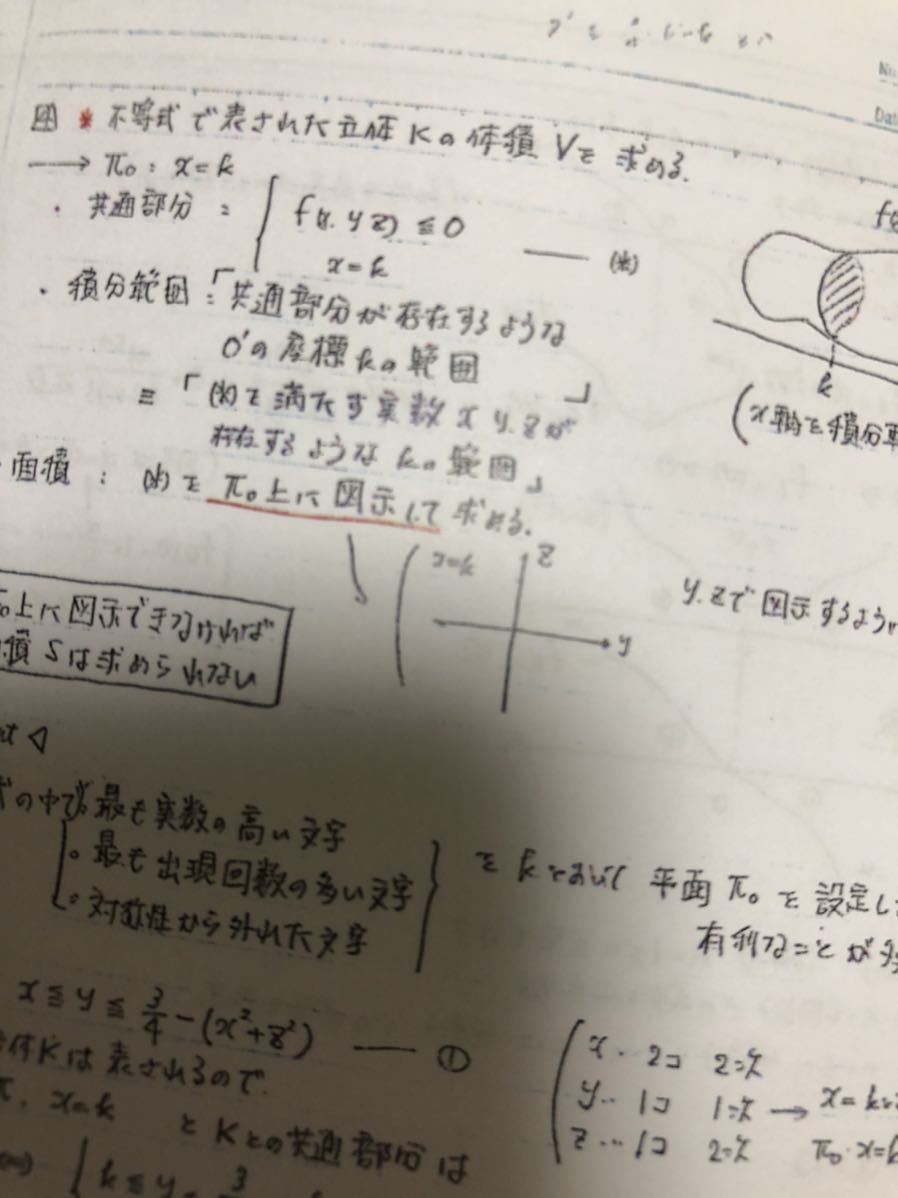 No.
Date
④ * 不等式で表された立体Kの体積Vを求める.
→ π₀: x=k
・共通部分: { f(x, y z) ≦ 0
x=k —— (*)
f(x
・積分範囲:「共通部分が存在するような
O'の座標kの範囲」
≡「(*)を満たす実数 x y, z が
存在するような kの範囲」
k
(x軸を積分
・面積: (*)を π₀上に図示して求める.
x=k
z
y
y, zで図示するように
π₀上に図示できなければ
面積Sは求められない
nt ◁
式の中で。最も実数の高い文字
。最も出現回数の多い文字
。対称性から外れた文字
を kとおいて 平面 π₀ を設定し
有利なことが多
x ≦ y ≦ 3/4 − (x²+z²) —— ①
体Kは表されるので.
x=k とKとの共通部分は
{ k ≦ y ≦ 3/
x‥ 2コ 2=次
y‥ 1コ 1=次 → x=k
z … 1コ 2=次 π₀: x=k